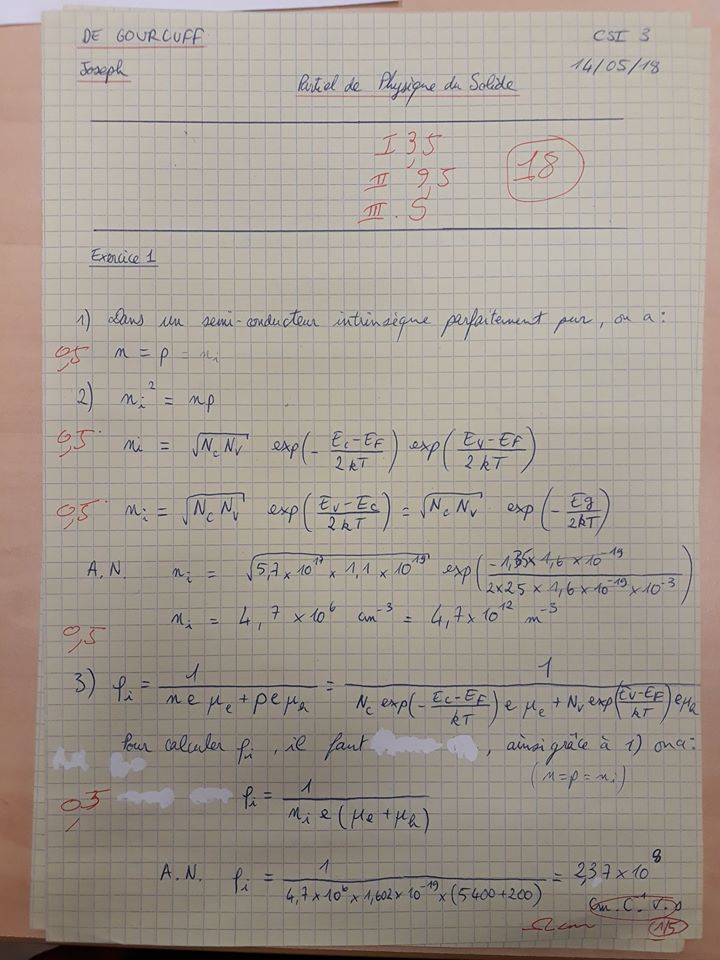 DE GOURCUFF
CSI 3
Joseph
14/05/18
Partiel de Physique du Solide
I 3,5
II 9,5
III. 5
18
Exercice 1
1) Dans un semi-conducteur intrinsèque parfaitement pur, on a :
0,5 n = p = ni
2) ni² = np
0,5 ni = √(Nc Nv) exp(- (Ec-EF)/(2kT)) exp((Ev-EF)/(2kT))
0,5 ni = √(Nc Nv) exp((Ev-Ec)/(2kT)) = √(Nc Nv) exp(- Eg/(2kT))
A.N. ni = √(5,7 × 10^17 × 1,1 × 10^19) exp((-1,35 × 1,6 × 10^-19)/(2 × 25 × 1,6 × 10^-19 × 10^-3))
0,5 ni = 4,7 × 10^6 cm^-3 = 4,7 × 10^12 m^-3
3) ρi = 1/(n e μe + p e μh) = 1/(Nc exp(- (Ec-EF)/(kT)) e μe + Nv exp((Ev-EF)/(kT)) e μh)
Pour calculer ρi, il faut , ainsi grâce à 1) on a :
(n=p=ni)
0,5 ρi = 1/(ni e (μe + μh))
A.N. ρi = 1/(4,7 × 10^6 × 1,602 × 10^-19 × (5400+200)) = 2,37 × 10^8
Ω cm
1/5